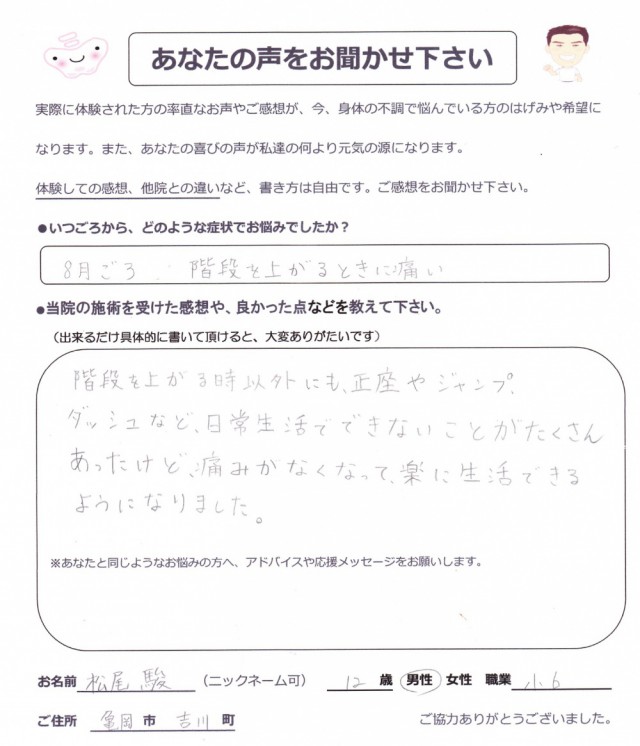 あなたの声をお聞かせ下さい
実際に体験された方の率直なお声やご感想が、今、身体の不調で悩んでいる方のはげみや希望に
なります。また、あなたの喜びの声が私達の何より元気の源になります。
体験しての感想、他院との違いなど、書き方は自由です。ご感想をお聞かせ下さい。
●いつごろから、どのような症状でお悩みでしたか？
8月ごろ 階段を上がるときに痛い
●当院の施術を受けた感想や、良かった点などを教えて下さい。
（出来るだけ具体的に書いて頂けると、大変ありがたいです）
階段を上がる時以外にも、正座やジャンプ、
ダッシュなど、日常生活でできないことがたくさん
あったけど、痛みがなくなって、楽に生活できる
ようになりました。
※あなたと同じようなお悩みの方へ、アドバイスや応援メッセージをお願いします。
お名前 松尾 駿 （ニックネーム可） 12 歳 男性 女性 職業 小6
ご住所 亀岡 市 吉川 町 ご協力ありがとうございました。